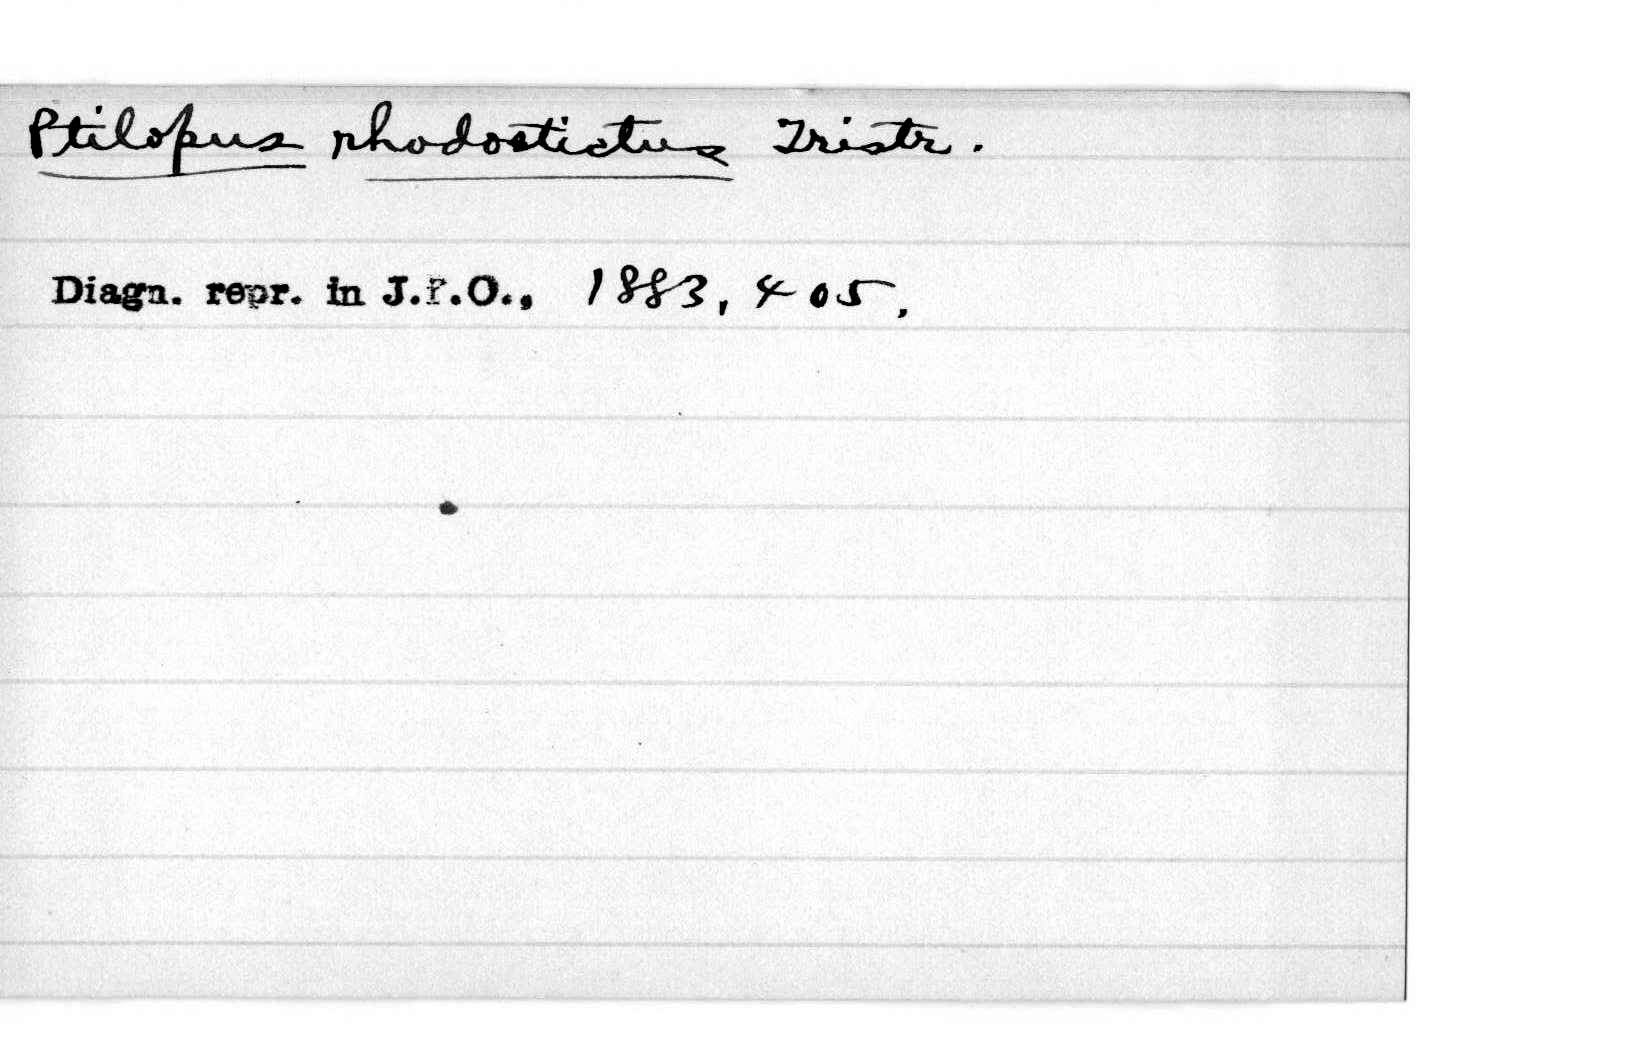 Ptilopus rhodostictus Tristr.
Diagn. repr. in J.f.O., 1883, 405.